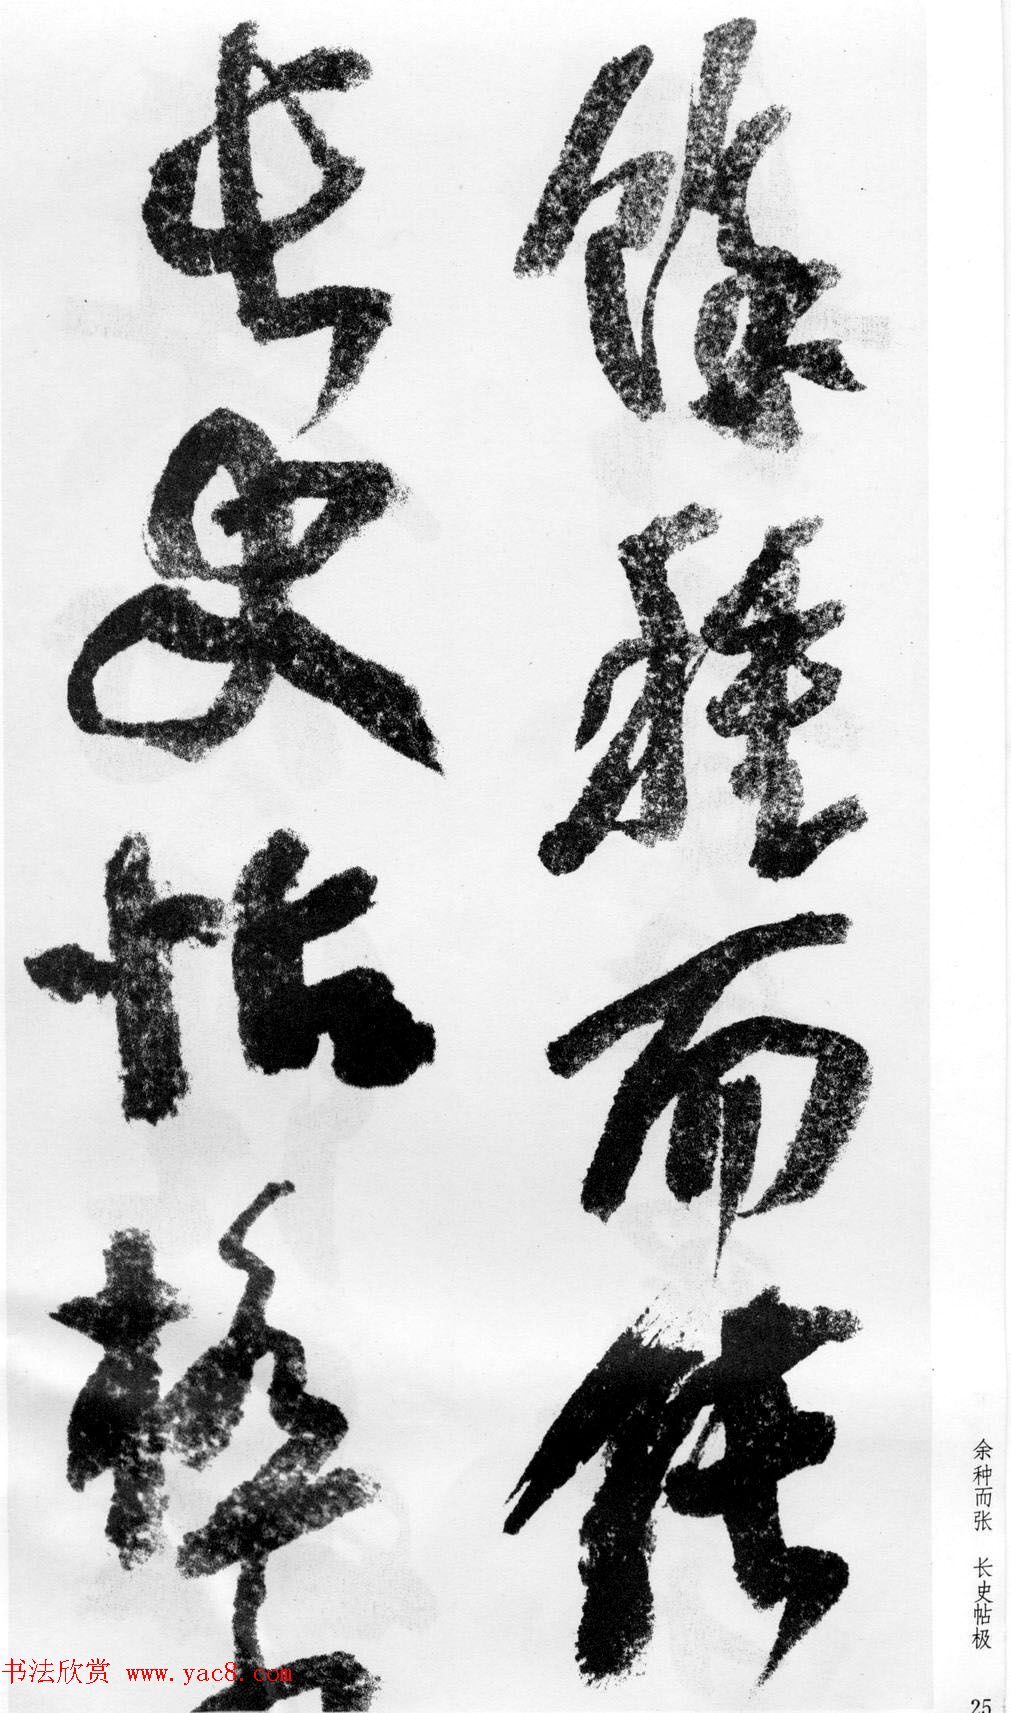 餘種而張
長史帖極
余种而张 长史帖极
25
书法欣赏 www.yac8.com